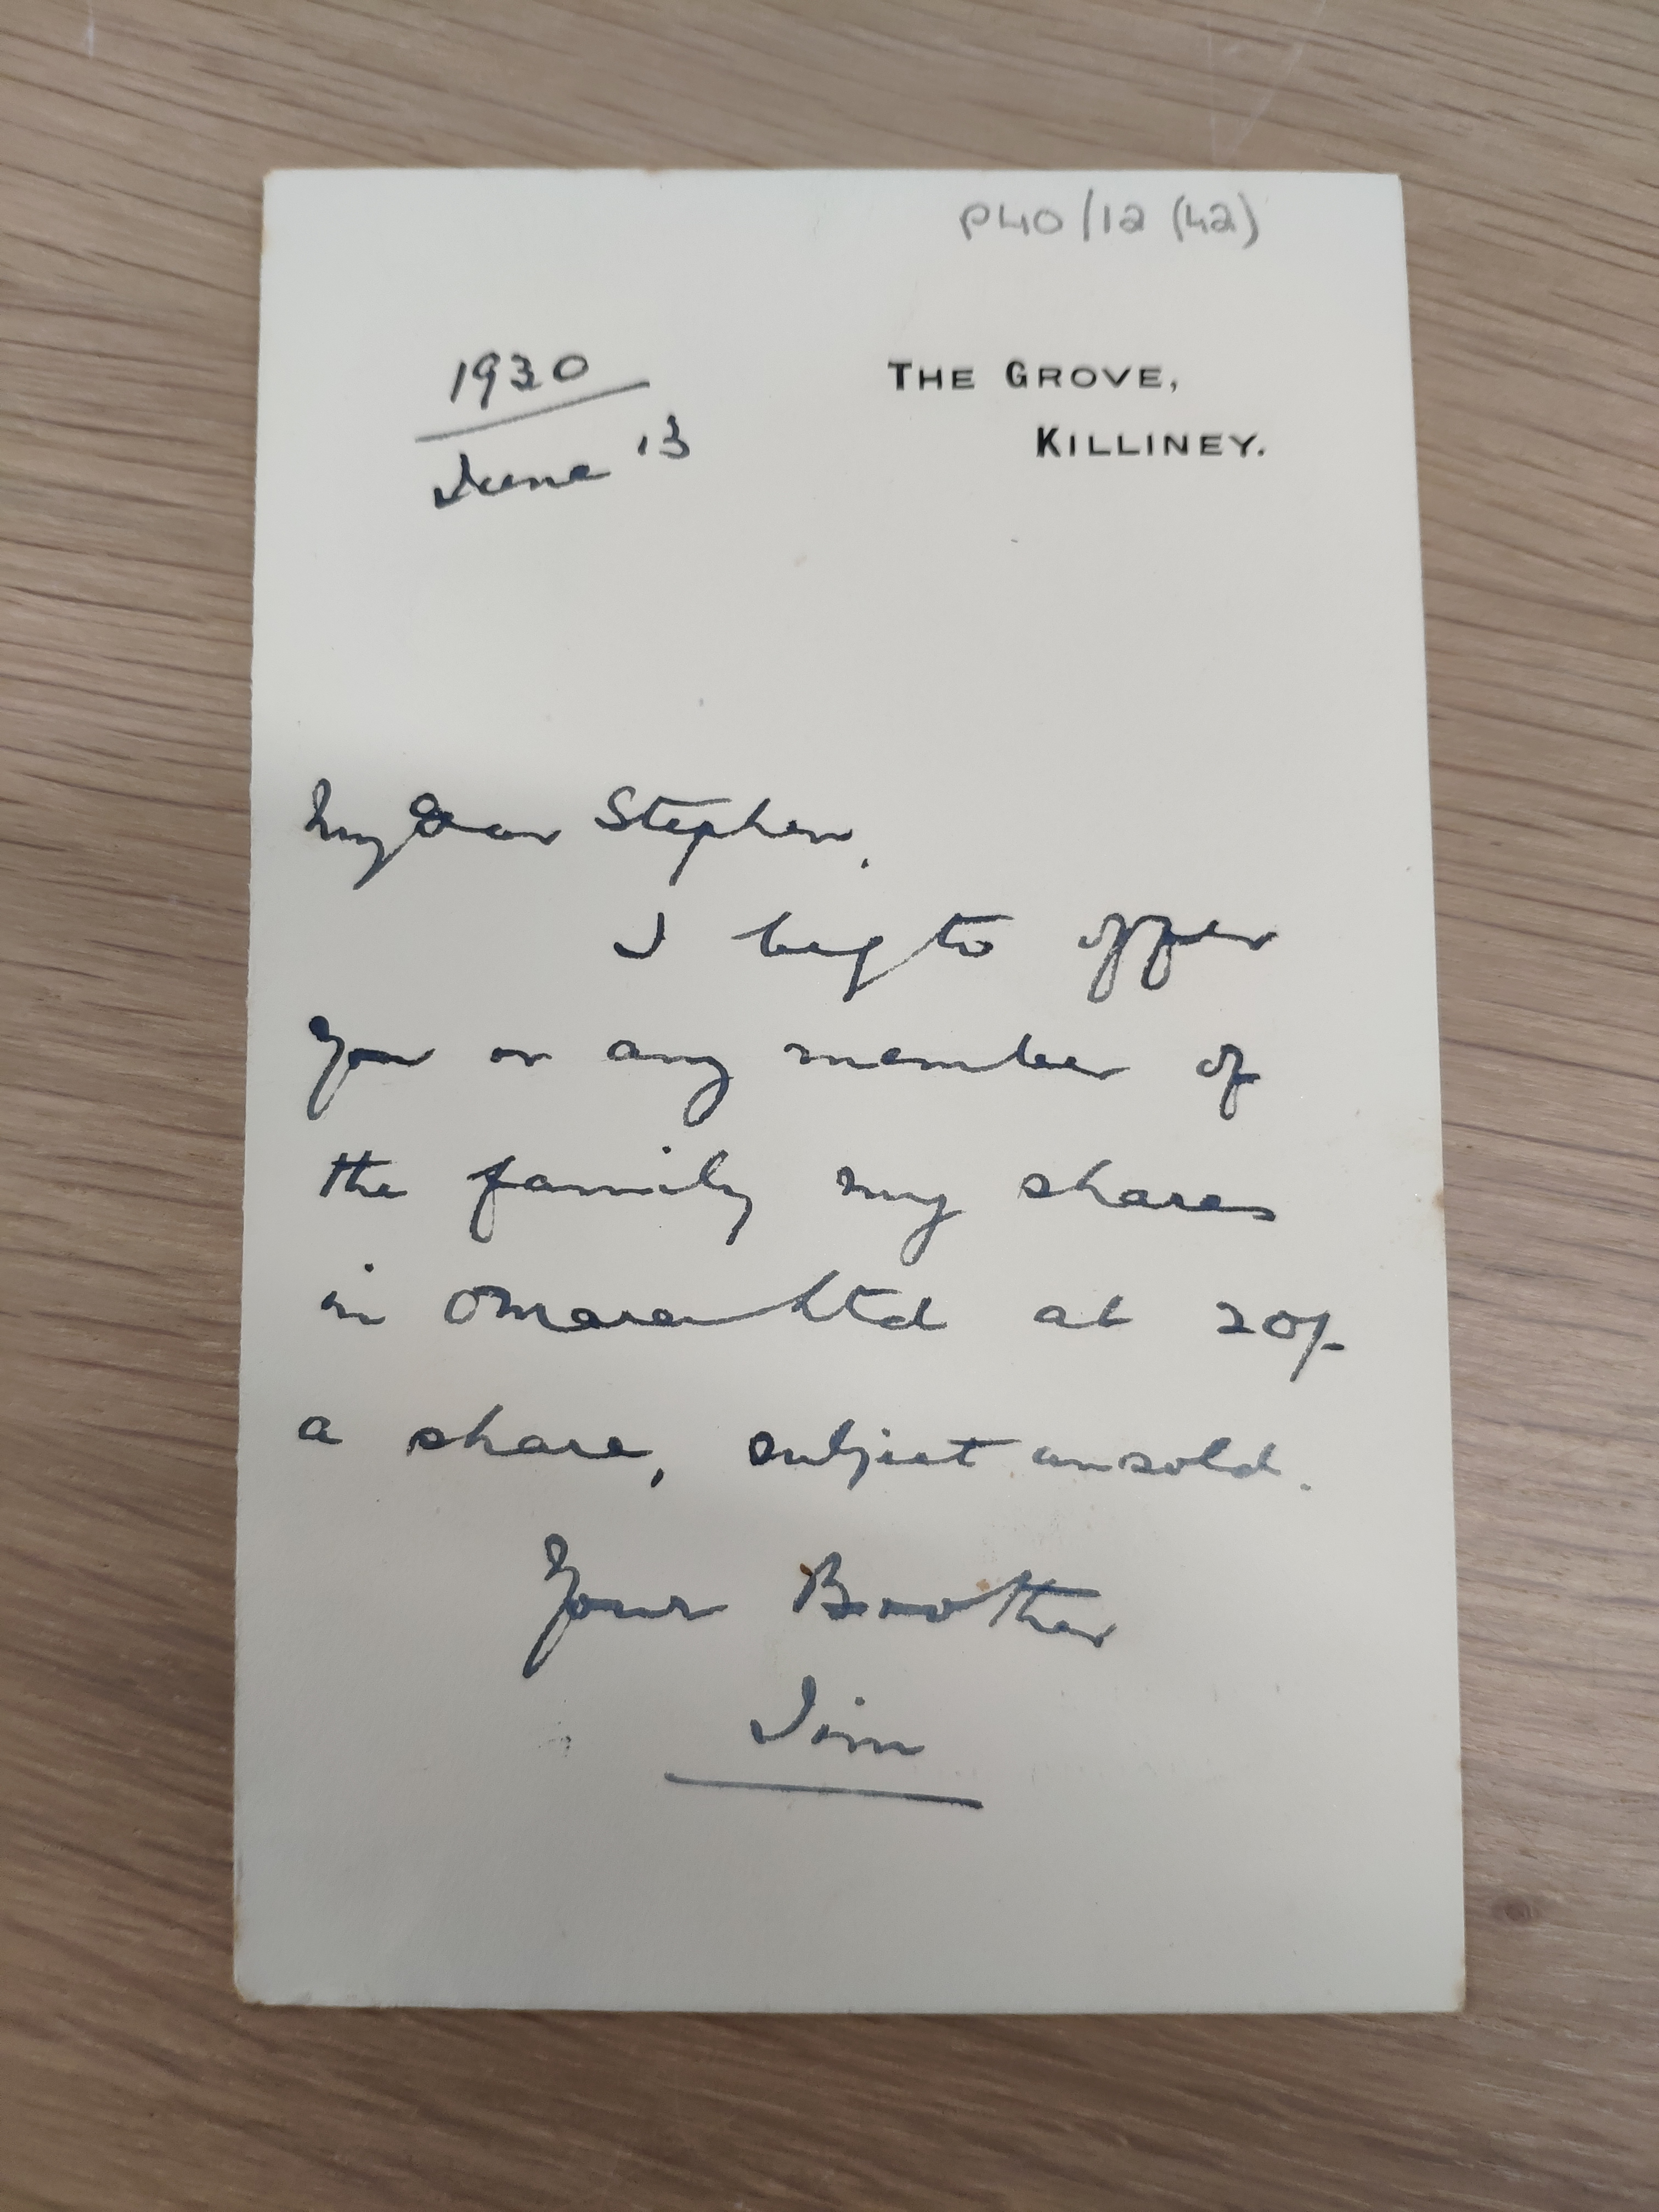 P40/12 (42)
1930
June 13
THE GROVE,
KILLINEY.
My Dear Stephen,
I beg to offer
you or any member of
the family my shares
in OMara Ltd at 20/-
a share, subject unsold.
Your Brother
Jim